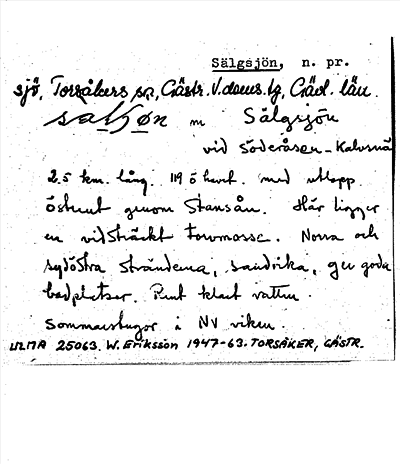 Sälgsjön, n. pr.
sjö, Torsåkers sn, Gästr. V. doms. tg, Gävl. län.
saļjøn m Sälgsjön
vid Söderåsen - Kalvsnäs
2.5 km. lång. 119 ö havet. med utlopp
österut genom Stansån. Här ligger
en vidsträckt torvmosse. Norra och
sydöstra stränderna, sandrika, ger goda
badplatser. Rent klart vatten.
Sommarstugor i NV viken.
ULMA 25063. W. Eriksson 1947-63. TORSÅKER, GÄSTR.